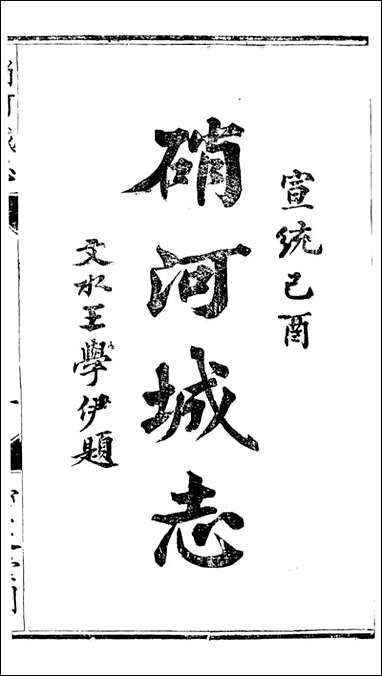 宣統己酉
硝河城志
文水王學伊題